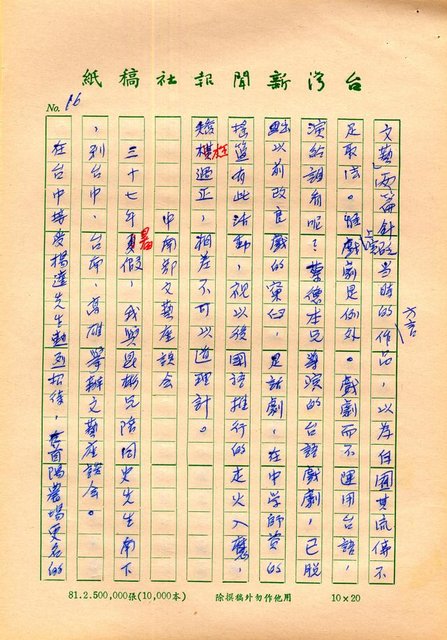 台灣新聞報社稿紙
No. 16
文藝」兩篇針砭當時的作品，以為自圖其流俗不
足取法。唯戲劇是例外。戲劇而不運用台語，
演給誰看呢？蔡德本兄導演的台語戲劇，已脫
出以前改良戲的窠臼，是話劇，在中學師資的
搖籃有此活動，視以後國語推行的走火入魔，
矯枉過正，相差不可以道理計。
中南部文藝座談會
三十七年暑假，我與昆彬兄陪同史先生南下
，到台中、台南、高雄舉辦文藝座談會。
在台中接受楊逵先生熱烈招待，首陽農場更名的
方言
81.2.500,000張(10,000本)
除撰稿外勿作他用
10×20